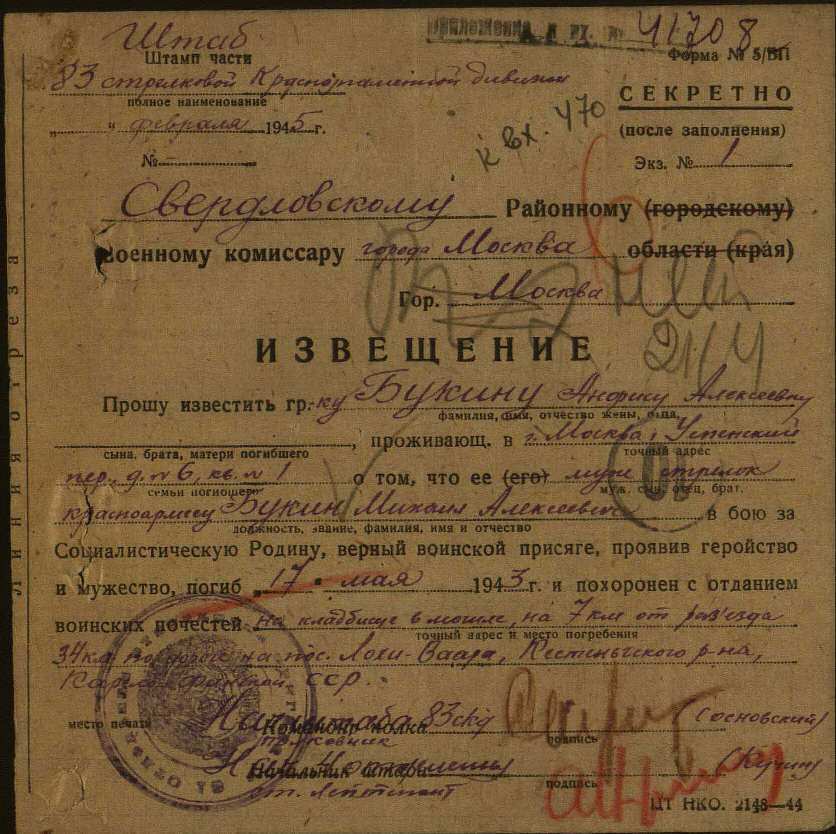 Приложение к вх. № 41708
Штаб
Штамп части
Форма № 5/БП
83 стрелковой Краснознаменной дивизии
полное наименование
СЕКРЕТНО
„ " февраля 1945 г.
(после заполнения)
к вх. 470
№
Экз. № 1
Свердловскому Районному (городскому)
Военному комиссару города Москва области (края)
Гор. Москва
21/4
ИЗВЕЩЕНИЕ
Прошу известить гр.-ку Букину Анфису Алексеевну
фамилия, имя, отчество жены, отца,
, проживающ. в г. Москва, Успенский
сына, брата, матери погибшего
точный адрес
пер., д. № 6, кв. № 1 о том, что ее (его) муж стрелок
семьи погибшего
муж, сын, отец, брат.
красноармеец Букин Михаил Алексеевич в бою за
должность, звание, фамилия, имя и отчество
Социалистическую Родину, верный воинской присяге, проявив геройство
и мужество, погиб „17" мая 1943 г. и похоронен с отданием
воинских почестей на кладбище в могиле, на 7 км от раз'езда
точный адрес и место погребения
34 км по дороге на пос. Лохи-Ваара, Кестеньгского р-на,
Карело-Финской ССР.
место печати
Нач. штаба 83 скд (Сосновский)
Командир полка
полковник
подпись
Начальник штаба
(Кучин)
ст. лейтенант
подпись
ЦТ НКО. 2148—44
Линия отреза